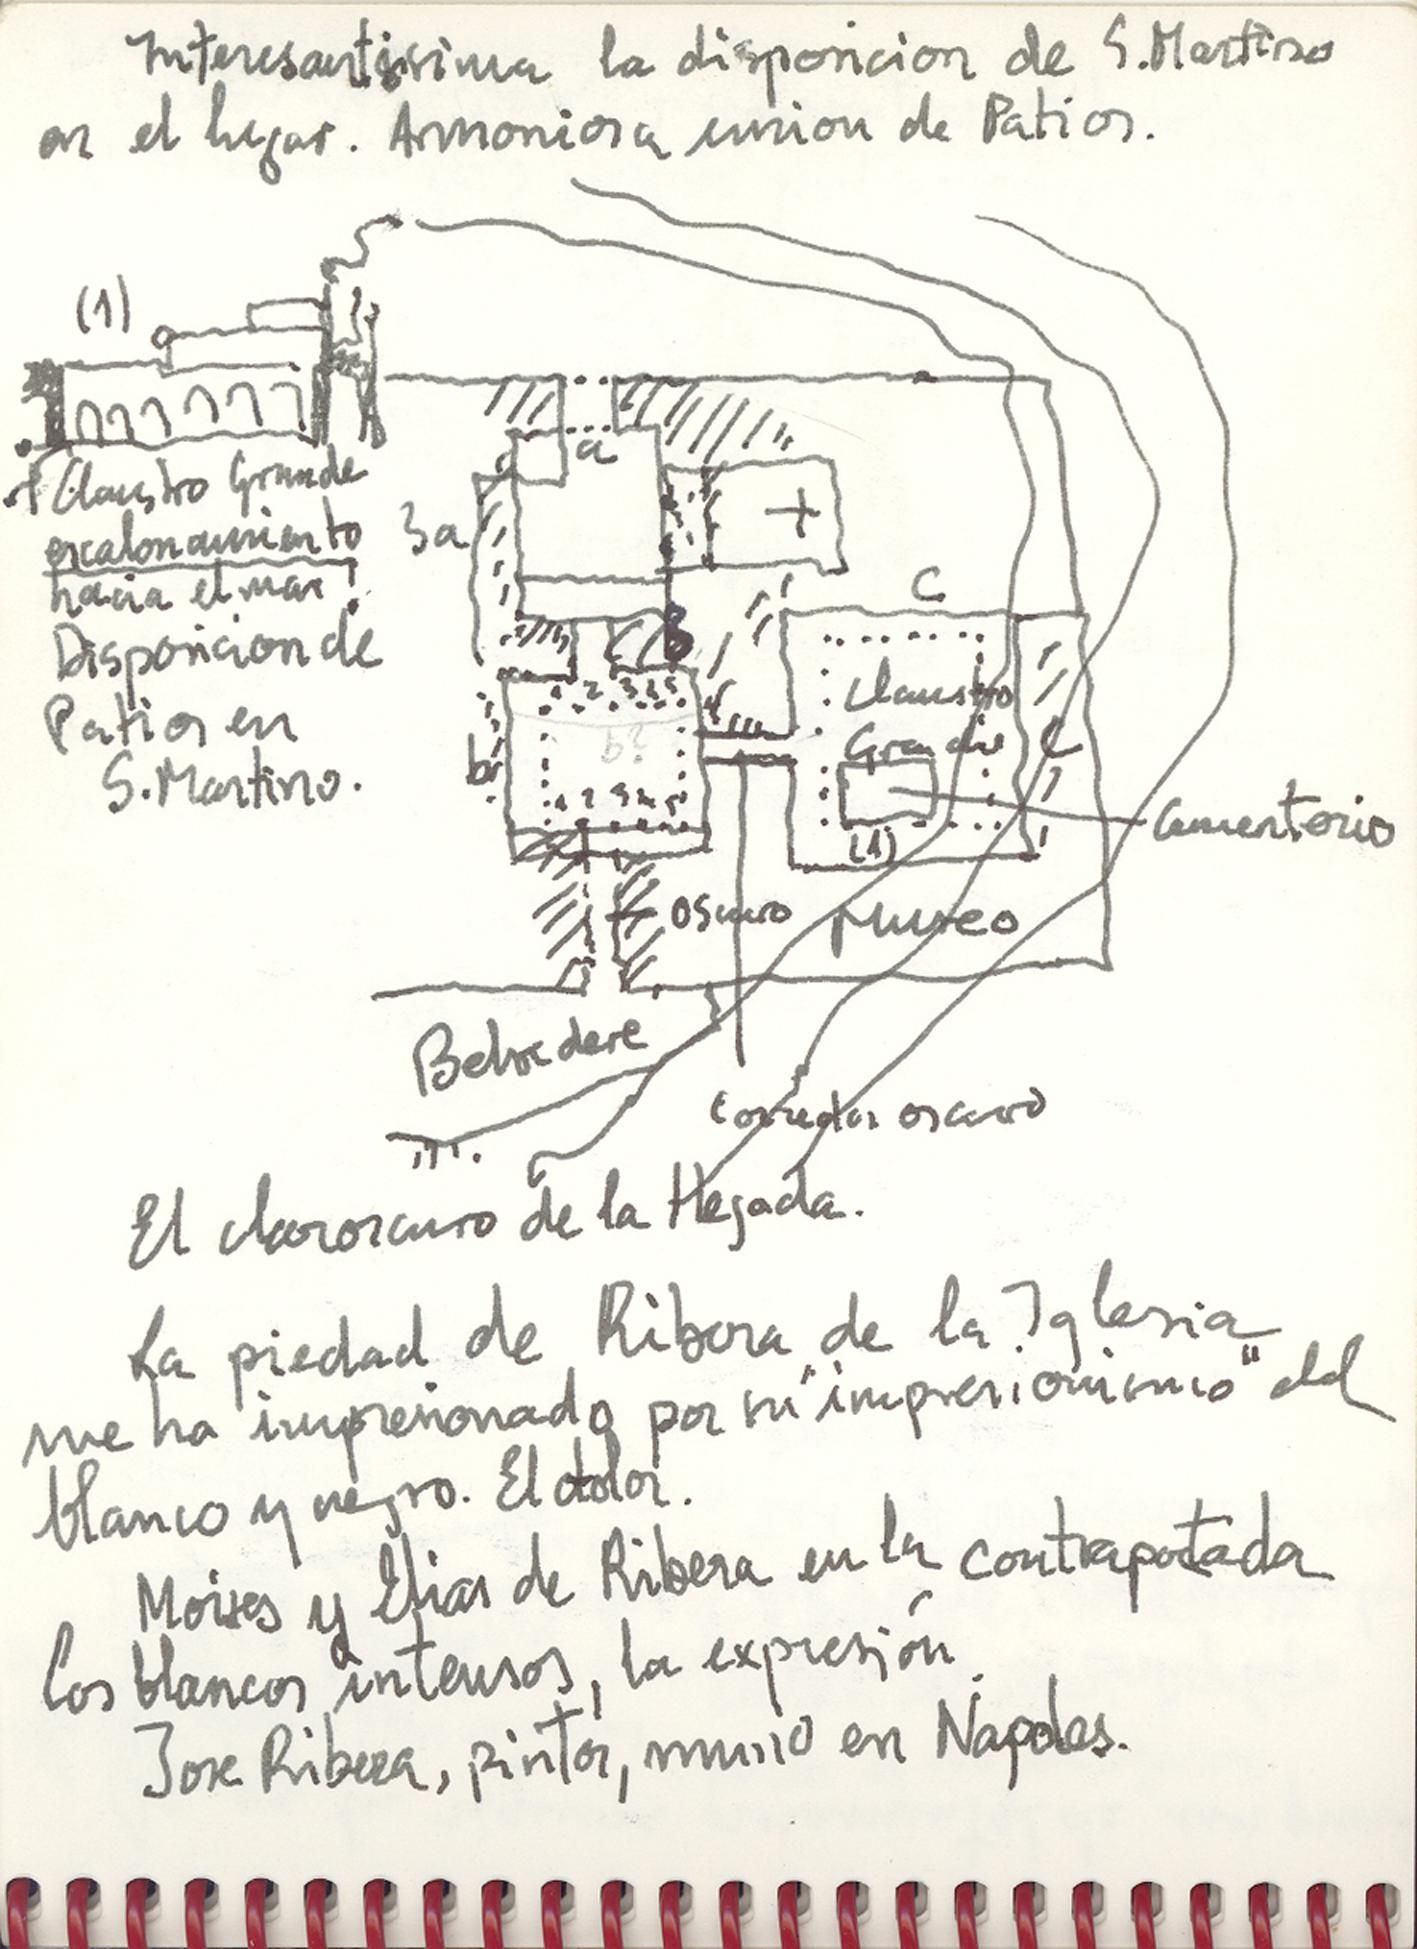 Interesantisima la disposicion de S. Martino
en el lugar. Armoniosa union de Patios.
(1)
a
Claustro Grande
escalonamiento
hacia el mar!
3a
+
C
B
Disposicion de
Patios en
S. Martino.
1 2 3 4 5
b
Claustro
Grande
C
1 2 3 4 5
Cementerio
(1)
oscuro
Museo
Belvedere
Corredor oscuro
El claroscuro de la llegada.
La piedad de Ribera de la Iglesia
me ha impresionado por su "impresionismo" del
blanco y negro. El dolor.
Moises y Elias de Ribera en la contrapotada
los blancos intensos, la expresión.
Jose Ribera, pintor, murio en Napoles.